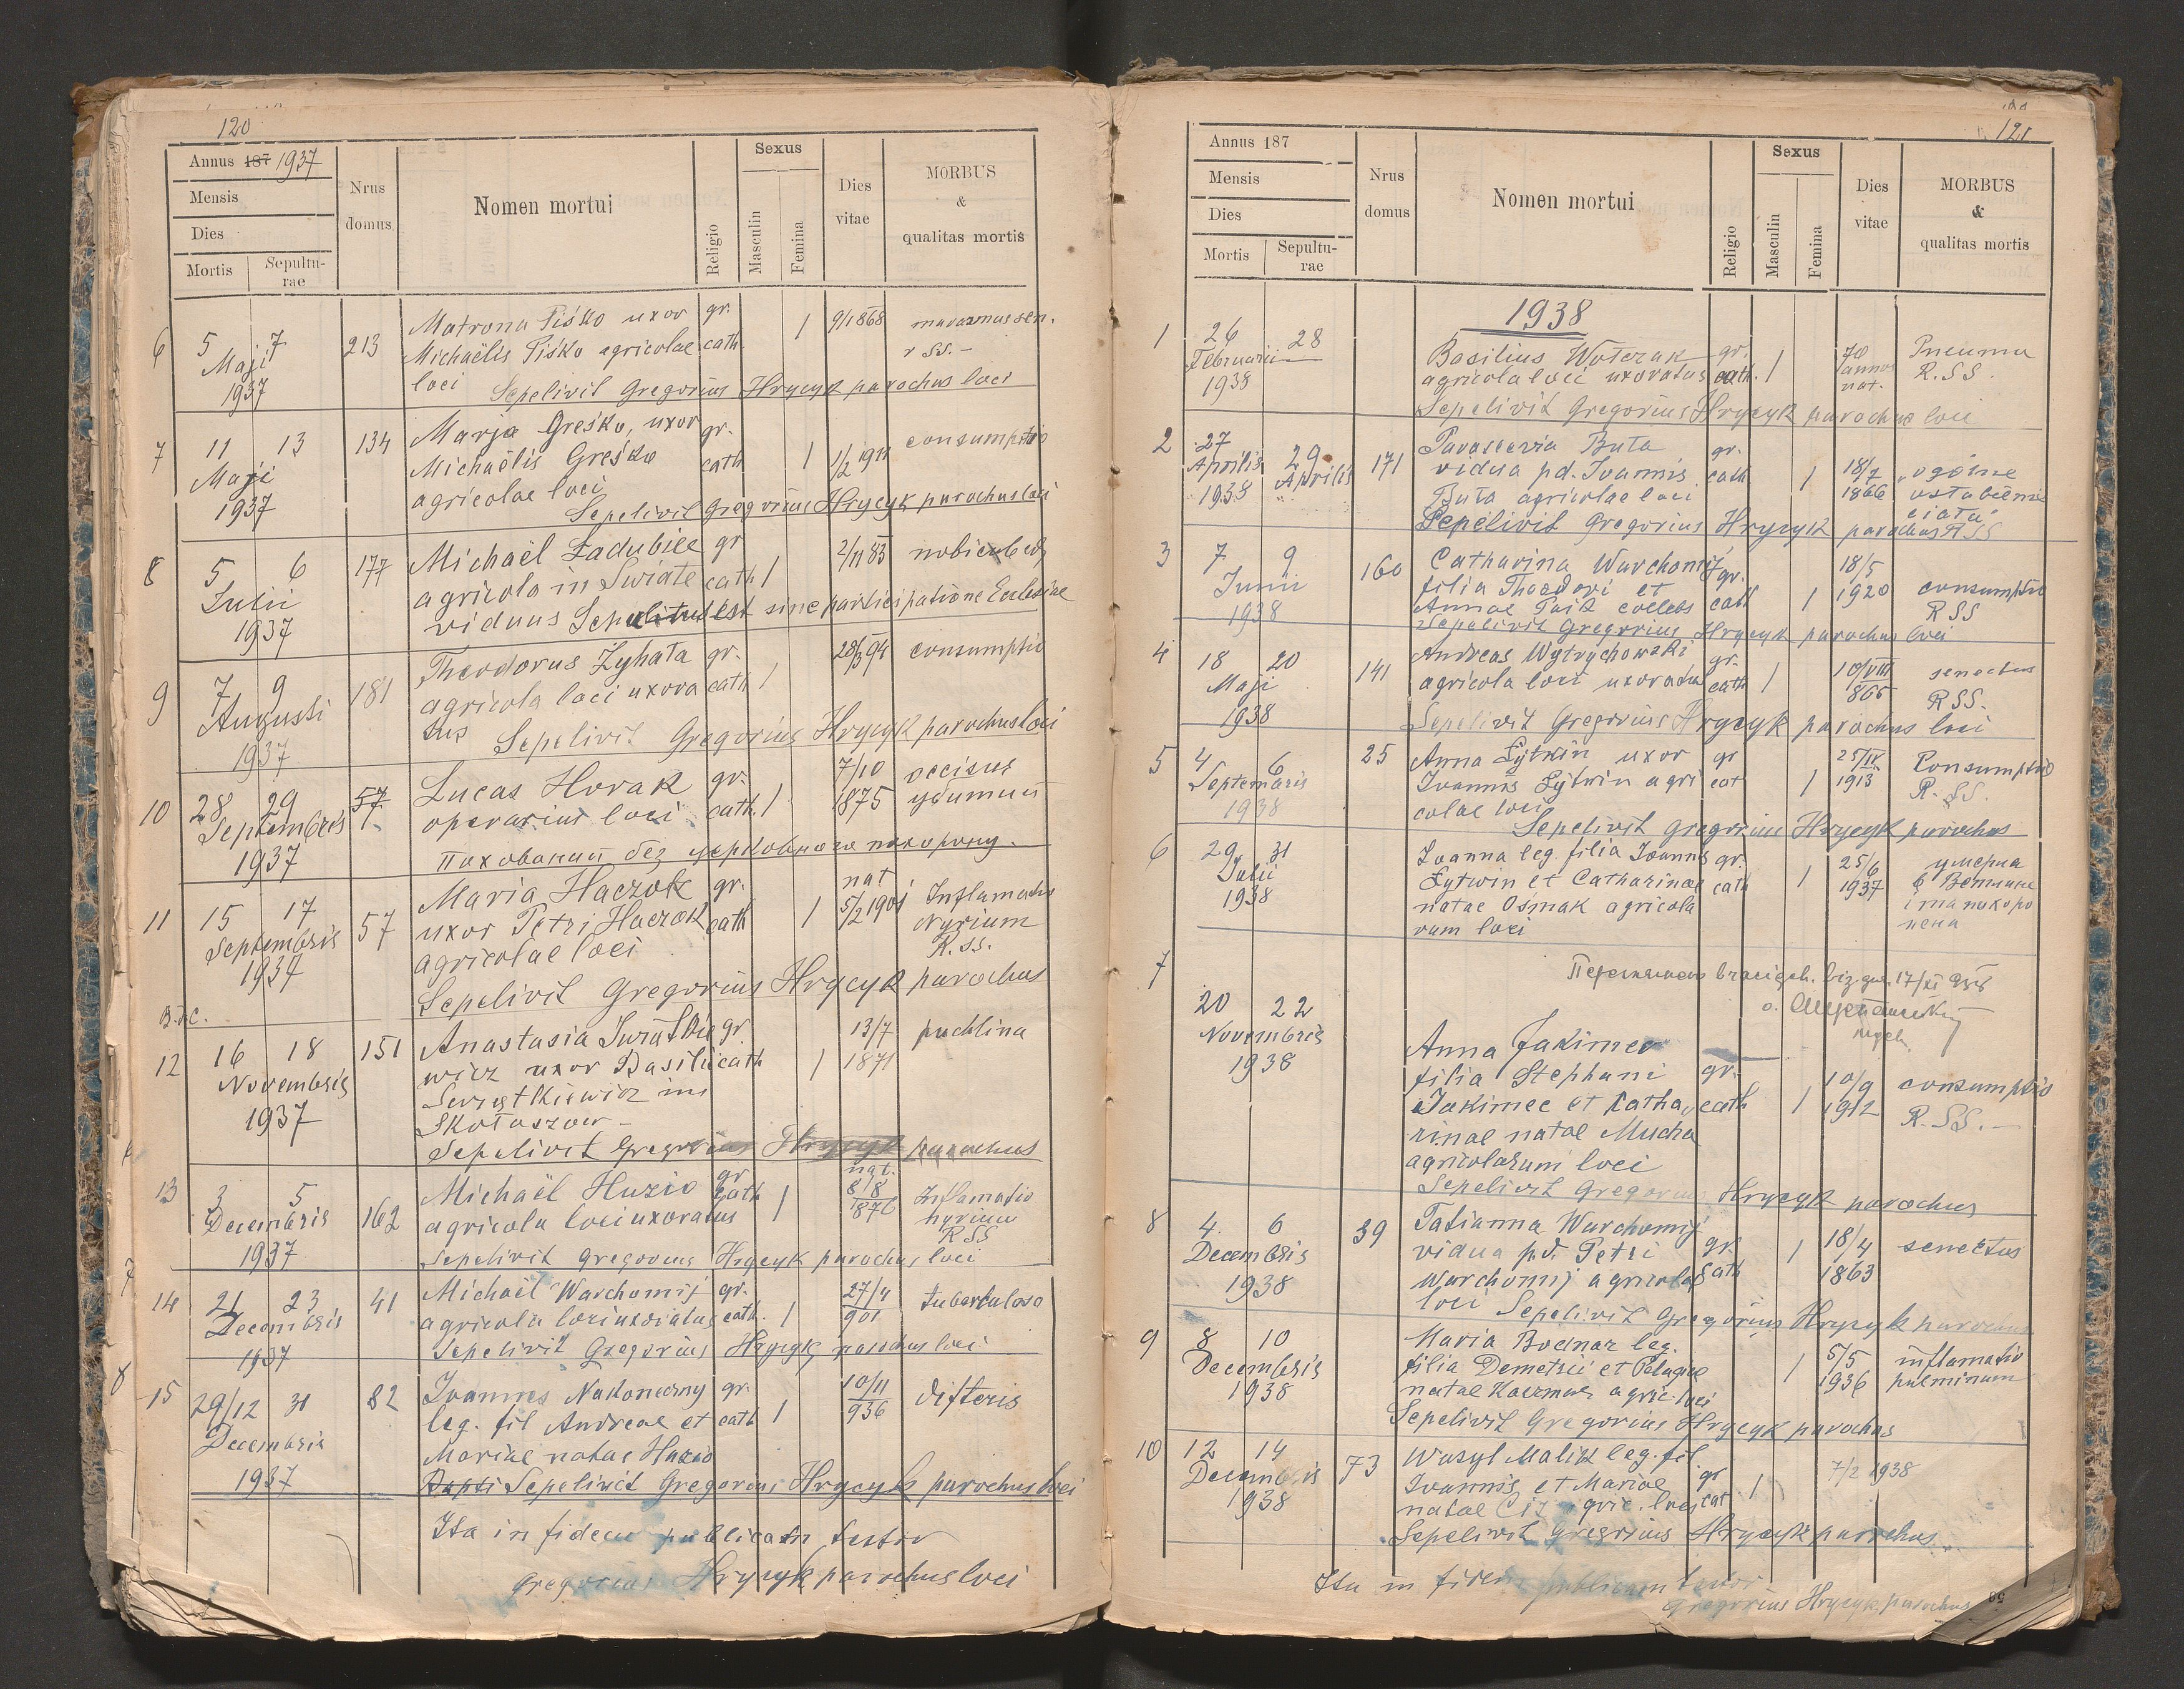 120
Annus 187 1937
Mensis
Dies
Mortis
Sepultu-
rae
Nrus
domus
Nomen mortui
Religio
Sexus
Masculin
Femina
Dies
vitae
MORBUS
&
qualitas mortis
6 5 7 213 Matrona Piśko uxor gr. 1 9/1 1868 marazmus sen.
Maji Michaëlis Piśko agricolae cath. r SS.-
1937 loci Sepelivit Gregorius Hrycyk parochus loci
7 11 13 134 Marja Greśko, uxor gr. 1 1/2 1911 consumptio
Maji Michaëlis Greśko cath
1937 agricolae loci
Sepelivit Gregorius Hrycyk parochus loci
8 5 6 177 Michaël Ładubiec gr 1 2/11 83
Julii agricola in Świate cath
1937 viduus Sepelitus est sine participatione Ecclesiae
9 7 9 181 Theodorus Zyhała gr. 1 28/3 94 consumptio
Augusti agricola loci uxora cath
1937 tus Sepelivit Gregorius Hrycyk parochus loci
10 28 29 57 Lucas Horak gr. 1 7/10 occisus
Septembris operarius loci cath. 1875 убитий
1937 Похований без церковного похорону.
11 15 17 57 Maria Haczok gr. 1 nat 5/2 1901 Inflamatio
Septembris uxor Petri Haczok cath Nyrium
1937 agricolae loci R.SS.
Sepelivit Gregorius Hrycyk parochus
12 16 18 151 Anastasia gr. 1 13/7 puchlina
Novembris wicz uxor Basilii cath 1871
1937
Skołoszow -
Sepelivit Gregorius Hrycyk parochus
13 3 5 162 Michaël Huzio gr cath 1 nat. 8/8 1876 Inflamatio
Decembris agricola loci uxoratus nyrium
1937 RSS
Sepelivit Gregorius Hrycyk parochus loci
14 21 23 41 Michaël Warchomij gr. 1 27/4 tuberculoso
Decembris agricola loci uxoratus cath. 901
1937 Sepelivit Gregorius Hrycyk parochus loci
15 29/12 31 82 Ioannes Nakoneczny gr. 1 10/11 difteris
Decembris leg. fil Andreae et cath 936
1937 Mariae natae Huzio
Sepelivit Gregorius Hrycyk parochus loci
Ita in fidem publicam testor
Gregorius Hrycyk parochus loci
121
Annus 187
Mensis
Dies
Mortis
Sepultu-
rae
Nrus
domus
Nomen mortui
Religio
Sexus
Masculin
Femina
Dies
vitae
MORBUS
&
qualitas mortis
1938
1 26 28 Basilius Wołczak gr. 1 70 Pneuma
Februarii agricola loci uxoratus cath. annos R.SS.
1938 nat.
Sepelivit Gregorius Hrycyk parochus loci
2 27 29 171 Parascevia Buta gr. 1 18/7 „ogólne
Aprilis Aprilis vidua pd. Ioannis cath 1866 osłabienie
1938 Buta agricolae loci ciała"
Sepelivit Gregorius Hrycyk parochus RSS
3 7 9 160 Catharina Warchomij gr. 1 18/5
Junii filia Theodori et cath 1920 consumptio
1938 Annae coelebs RSS
Sepelivit Gregorius Hrycyk parochus loci
4 18 20 141 Andreas Wytrychowski gr. 1 10/VIII senectus
Maji agricola loci uxoratus cath 865 RSS.
1938 Sepelivit Gregorius Hrycyk parochus loci
5 4 6 25 Anna Łytwin uxor gr 1 25/IX Consumptio
Septembris Ioannis Łytwin agri cat 1913 R.SS.
1938 colae loci
Sepelivit Gregorius Hrycyk parochus
6 29 31 Ioanna leg. filia Ioannis gr. 1 25/6 умерла
Julii Łytwin et Catharinae cath 1937
1938 natae Osmak agricola і та похоро
rum loci нена
7
17/XI 938
20 22 Anna Jakimec gr. 1 10/9 consumptio
Novembris filia Stephani cath 1912 R.SS.-
1938 Jakimec et Catha,
rinae natae Mucha
agricolarum loci
Sepelivit Gregorius Hrycyk parochus
8 4 6 39 Tatianna Warchomij gr. 1 18/4 senectus
Decembris vidua pd. Petri cath 1863
1938 Warchomij agricolae
loci Sepelivit Gregorius Hrycyk parochus
9 8 10 Maria Bodnar leg. 1 5/5 inflamatio
Decembris filia Demetrii et Pelagiae 1936 pulminum
1938 natae Kaczmar agric. loci
Sepelivit Gregorius Hrycyk parochus
10 12 14 73 Wasyl Malik leg. fil. gr 1 7/2 1938
Decembris Ioannis et Mariae cat
1938 natae agric. loci
Sepelivit Gregorius Hrycyk parochus.
Ita in fidem publicam testor
Gregorius Hrycyk parochus